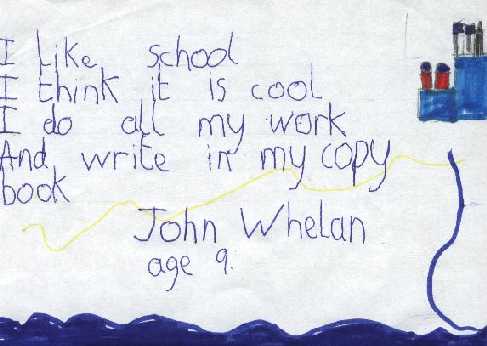 I Like school
I think it is cool
I do all my work
And write in my copy
book
John Whelan
age 9.